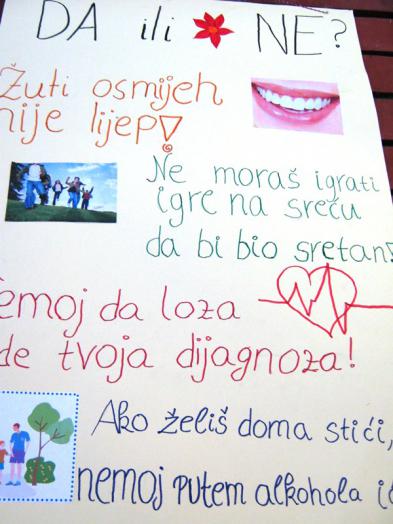 DA ili NE?
Žuti osmijeh
nije lijep!
Ne moraš igrati
igre na sreću
da bi bio sretan!
emoj da loza
de tvoja dijagnoza!
Ako želiš doma stići,
nemoj putem alkohola i